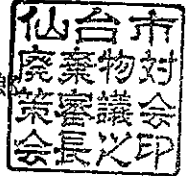 仙台市
廃棄物対
策審議会
会長之印